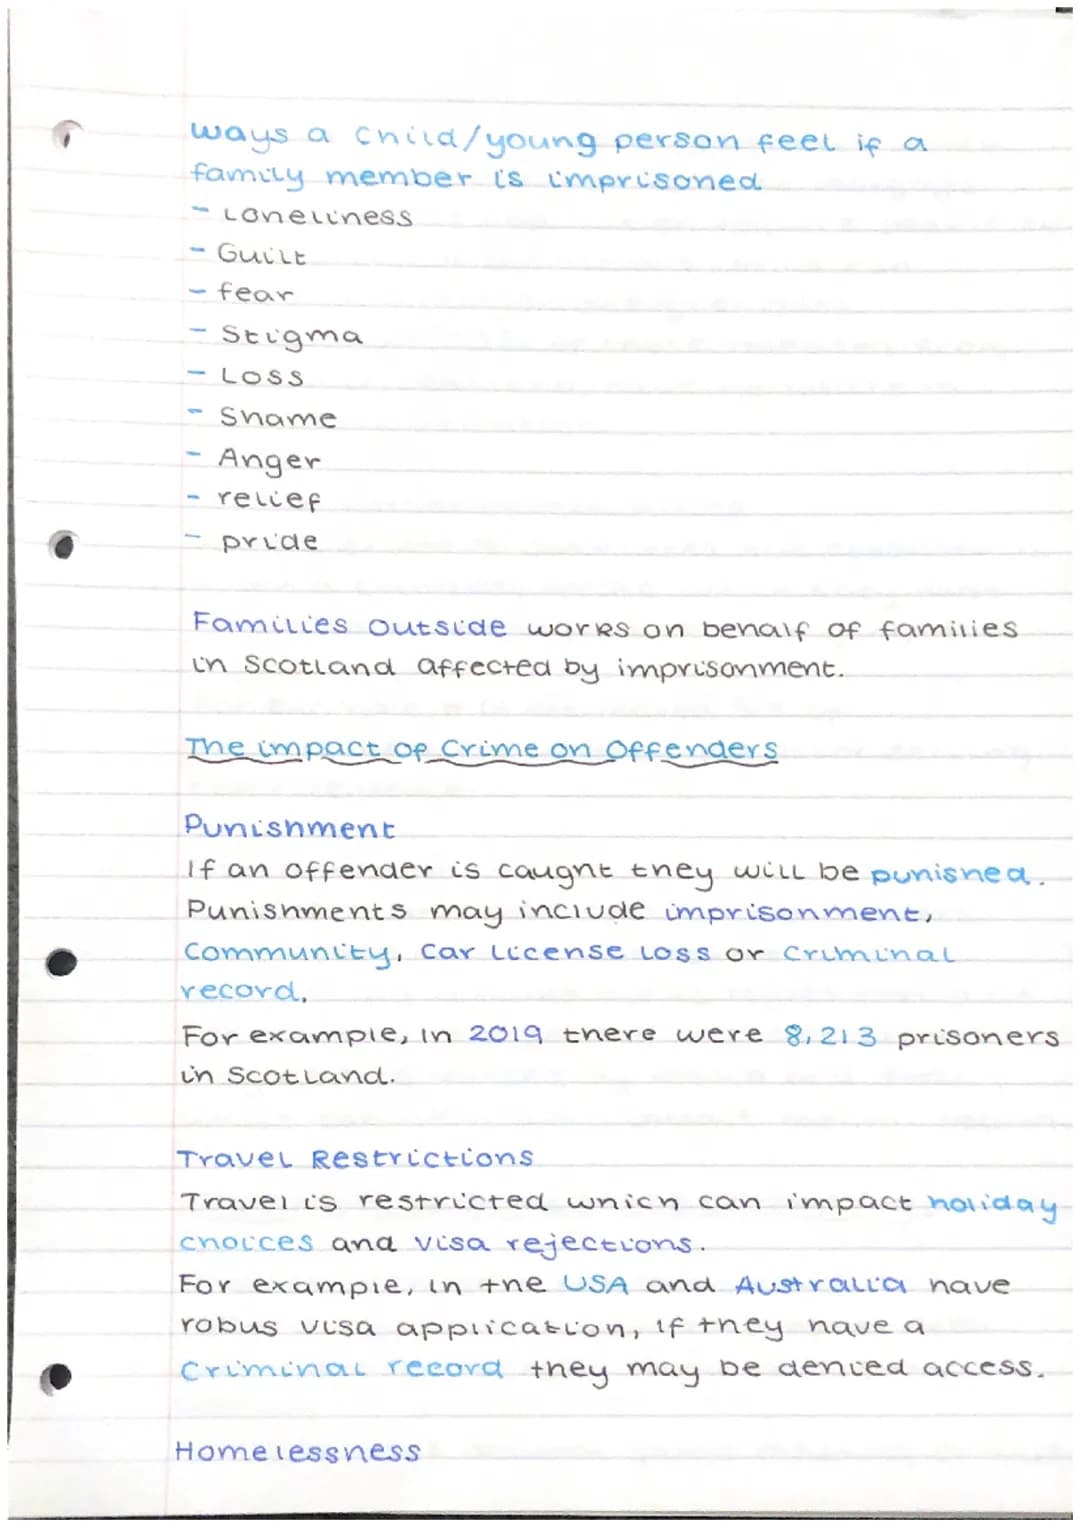 ways a child/young person feel if a
family member is imprisoned
- Loneliness
- Guilt
- fear
- Stigma
- Loss
- Shame
- Anger
- relief
- pride
Families Outside works on behalf of families
in Scotland affected by imprisonment.
The impact of Crime on Offenders
Punishment
If an offender is caught they will be punished.
Punishments may include imprisonment,
Community, Car License Loss or Criminal
record.
For example, in 2019 there were 8,213 prisoners
in Scotland.
Travel Restrictions
Travel is restricted which can impact holiday
choices and visa rejections.
For example, in the USA and Australia have
robus visa application, if they have a
Criminal record they may be denied access.
Homelessness